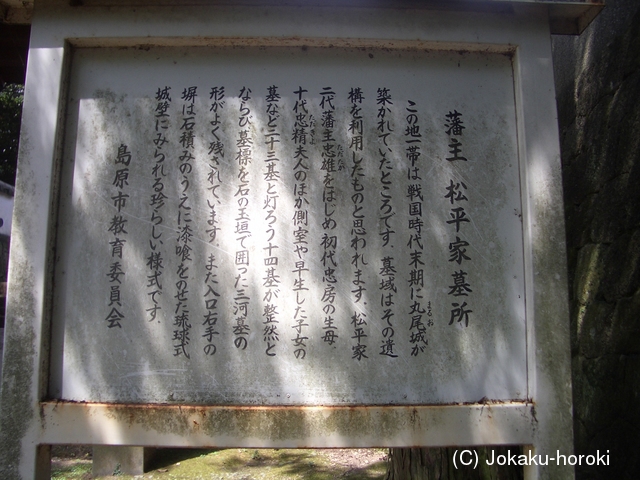 藩主 松平家墓所
この地一帯は戦国時代末期に丸尾城が
まるお
築かれていたところです。墓域はその遺
構を利用したものと思われます。松平家
二代藩主忠雄をはじめ初代忠房の生母、
ただたか
十代忠精夫人のほか側室や早生した子女の
ただきよ
墓など三十三基と灯ろう十四基が整然と
ならび墓標を石の玉垣で囲った三河墓の
形がよく残されています。また入口右手の
塀は石積みのうえに漆喰をのせた琉球式
城壁にみられる珍らしい様式です。
島原市教育委員会
(C) Jokaku-horoki